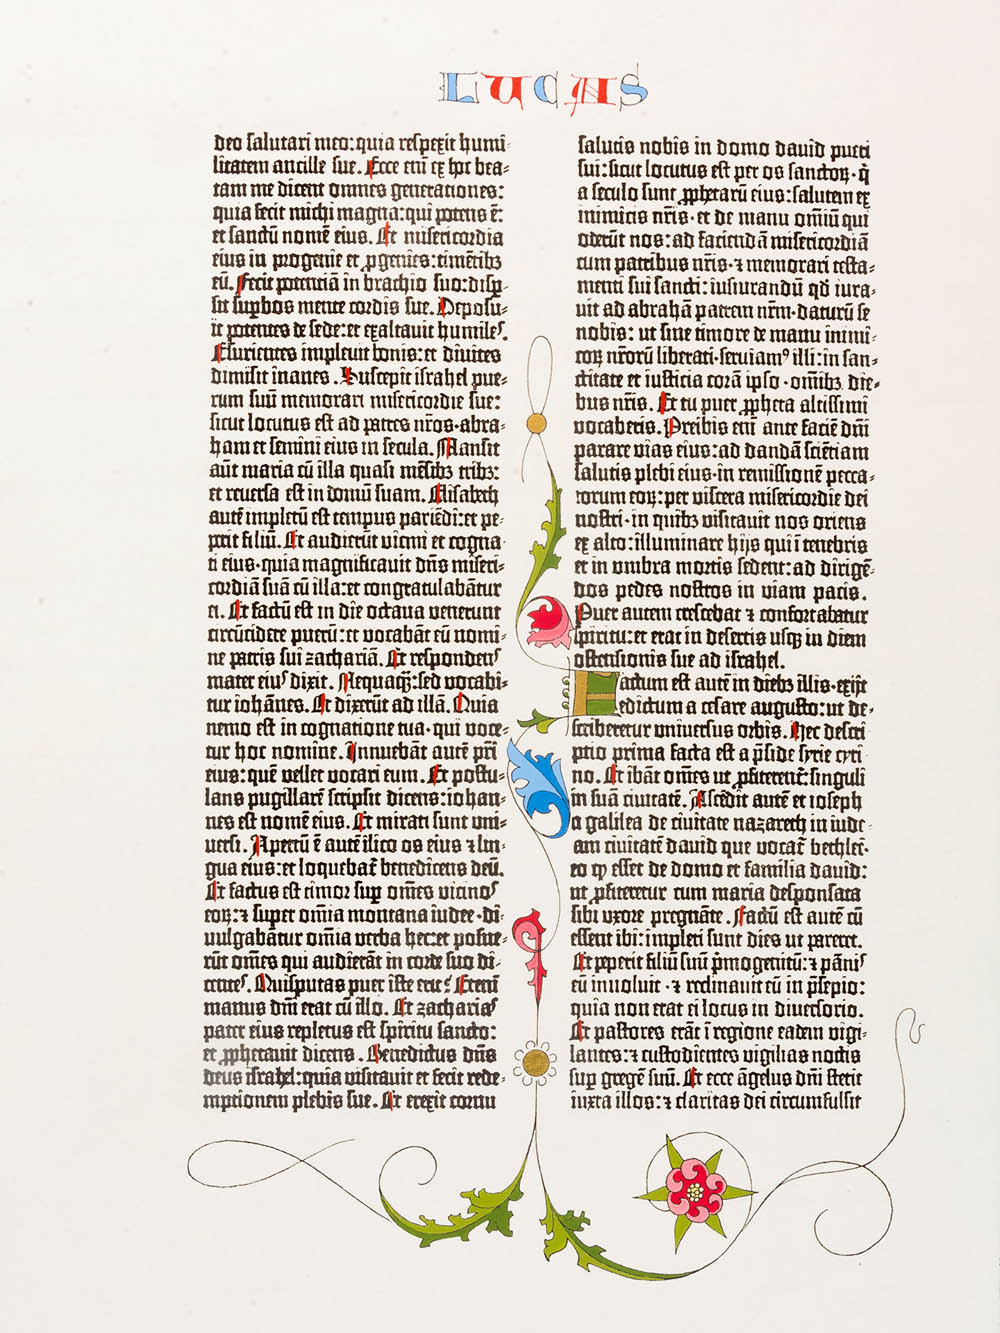 LUCAS
deo salutari meo: quia respexit humi-
litatem ancille sue. Ecce eni̅ ex hoc bea-
tam me dicent omnes generationes:
quia fecit michi magna: qui potens e̅:
et sanctu̅ nome̅ eius. Et misericordia
eius in progenie et ꝓgenies: time̅tibꝫ
eu̅. Fecit potentia̅ in brachio suo: disꝑ-
sit suꝑbos mente cordis sue. Deposu-
it potentes de sede: et exaltauit humiles.
Esurientes impleuit bonis: et diuites
dimisit inanes. Suscepit israhel pue-
rum suu̅ memorari misericordie sue:
sicut locutus est ad patres nr̅os· abra-
ham et semini eius in secula. Mansit
aut̅ maria cu̅ illa quasi me̅sibꝫ tribꝫ:
et reuersa est in domu̅ suam. Elisabeth
aute̅ impletu̅ est tempus parie̅di: et pe-
perit filiu̅. Et audieru̅t vicini et cogna-
ti eius· quia magnificauit dn̅s miseri-
cordia̅ sua̅ cu̅ illa: et congratulaba̅tur
ei. Et factu̅ est in die octaua venerunt
circu̅cidere pueru̅: et vocaba̅t eu̅ nomi-
ne patris sui zacharia̅. Et respondens
mater eiꝰ dixit. Nequaqȝ: sed vocabi-
tur ioha̅nes. Et dixeru̅t ad illa̅. Quia
nemo est in cognatione tua· qui voce-
tur hoc nomine. Innueba̅t aute̅ pr̅i
eius: que̅ vellet vocari eum. Et postu-
lans pugillare̅ scripsit dicens: iohan-
nes est nome̅ eius. Et mirati sunt uni-
uersi. Apertu̅ e̅ aute̅ ilico os eius ⁊ lin-
gua eius: et loquebat̅ benedicens deu̅.
Et factus est timor suꝑ om̅es vicinos
eoꝝ: ⁊ super om̅ia montana iudee· di-
vulgaba̅tur om̅ia verba hec: et posue-
ru̅t om̅es qui audiera̅t in corde suo di-
centes. Quisputas puer iste erit? Eteni̅
manus dn̅i erat cu̅ illo. Et zacharias
pater eius repletus est spiritu sancto:
et ꝓphetauit dicens. Benedictus dn̅s
deus israhel: quia visitauit et fecit rede-
mptionem plebis sue. Et erexit cornu
salutis nobis in domo dauid pueri
sui: sicut locutus est per os sanctoꝝ· q̅
a seculo sunt ꝓphetaru̅ eius: salutem ex
inimicis nr̅is· et de manu om̅iu̅ qui
oderu̅t nos: ad facienda̅ misericordia̅
cum patribus nr̅is· ⁊ memorari testa-
menti sui sancti: iusiurandu̅ qd̅ iura-
uit ad abraha̅ patrem nr̅m· daturu̅ se
nobis: ut sine timore de manu inimi-
coꝝ nr̅oru̅ liberati· seruiamꝰ illi: in san-
ctitate et iusticia cora̅ ipso· omi̅bꝫ die-
bus nr̅is. Et tu puer ꝓpheta altissimi
vocaberis. Preibis eni̅ ante facie̅ dn̅i
parare vias eius: ad danda̅ scie̅tiam
salutis plebi eius· in remissione̅ pecca-
torum eoꝝ: per viscera misericordie dei
nostri· in quibꝫ visitauit nos oriens
ex alto: illuminare hijs qui i̅ tenebris
et in vmbra mortis sedent: ad dirige̅-
dos pedes nostros in viam pacis.
Puer autem crescebat ⁊ confortabatur
spiritu: et erat in desertis usqȝ in diem
ostensionis sue ad israhel.
Factum est aute̅ in diebꝫ illis· exijt
edictum a cesare augusto: ut de-
scriberetur uniuersus orbis. Hec descri-
ptio prima facta est a p̅side syrie cyri-
no. Et iba̅t om̅es ut ꝓfiterent̅: singuli
in sua̅ ciuitate̅. Asce̅dit aute̅ et ioseph
a galilea de ciuitate nazareth in iude-
am ciuitate̅ dauid que vocat̅ bethlee̅:
eo ꝙ esset de domo et familia dauid:
ut ꝓfiteretur cum maria desponsata
sibi vxore pregna̅te. Factu̅ est aute̅ cu̅
essent ibi: impleti sunt dies ut pareret.
Et peperit filiu̅ suu̅ p̅mogenitu̅: ⁊ pa̅nis
eu̅ inuoluit· ⁊ reclinauit eu̅ in p̅sepio:
quia non erat ei locus in diuersorio.
Et pastores era̅t i̅ regione eadem vigi-
lantes: ⁊ custodientes vigilias noctis
suꝑ grege̅ suu̅. Et ecce a̅gelus dn̅i stetit
iuxta illos: ⁊ claritas dei circumfulsit